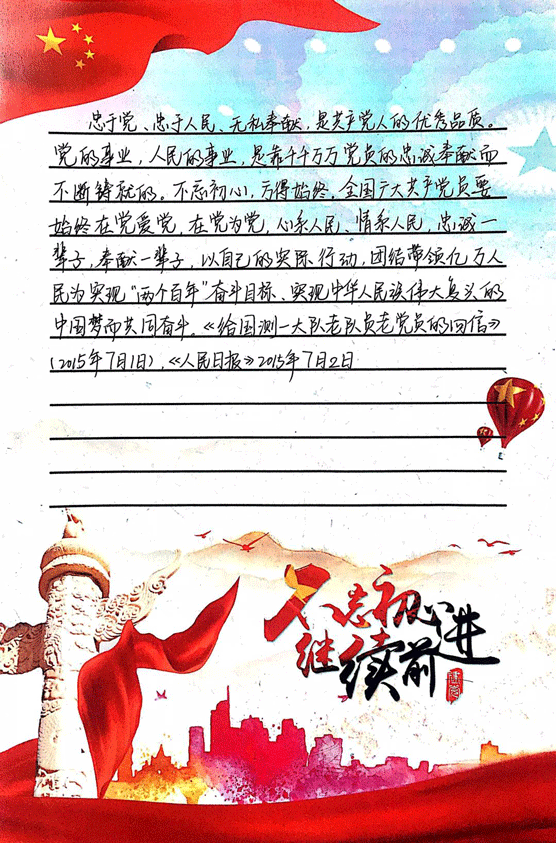 忠于党、忠于人民、无私奉献,是共产党人的优秀品质。
党的事业,人民的事业,是靠千千万万党员的忠诚奉献而
不断铸就的。不忘初心,方得始终,全国广大共产党员要
始终在党爱党,在党为党,心系人民、情系人民,忠诚一
辈子,奉献一辈子,以自己的实际行动,团结带领亿万人
民为实现“两个百年”奋斗目标、实现中华人民族伟大复兴的
中国梦而共同奋斗。《给国测一大队老队员老党员的回信》
(2015年7月1日),《人民日报》2015年7月2日
不忘初心
继续前进